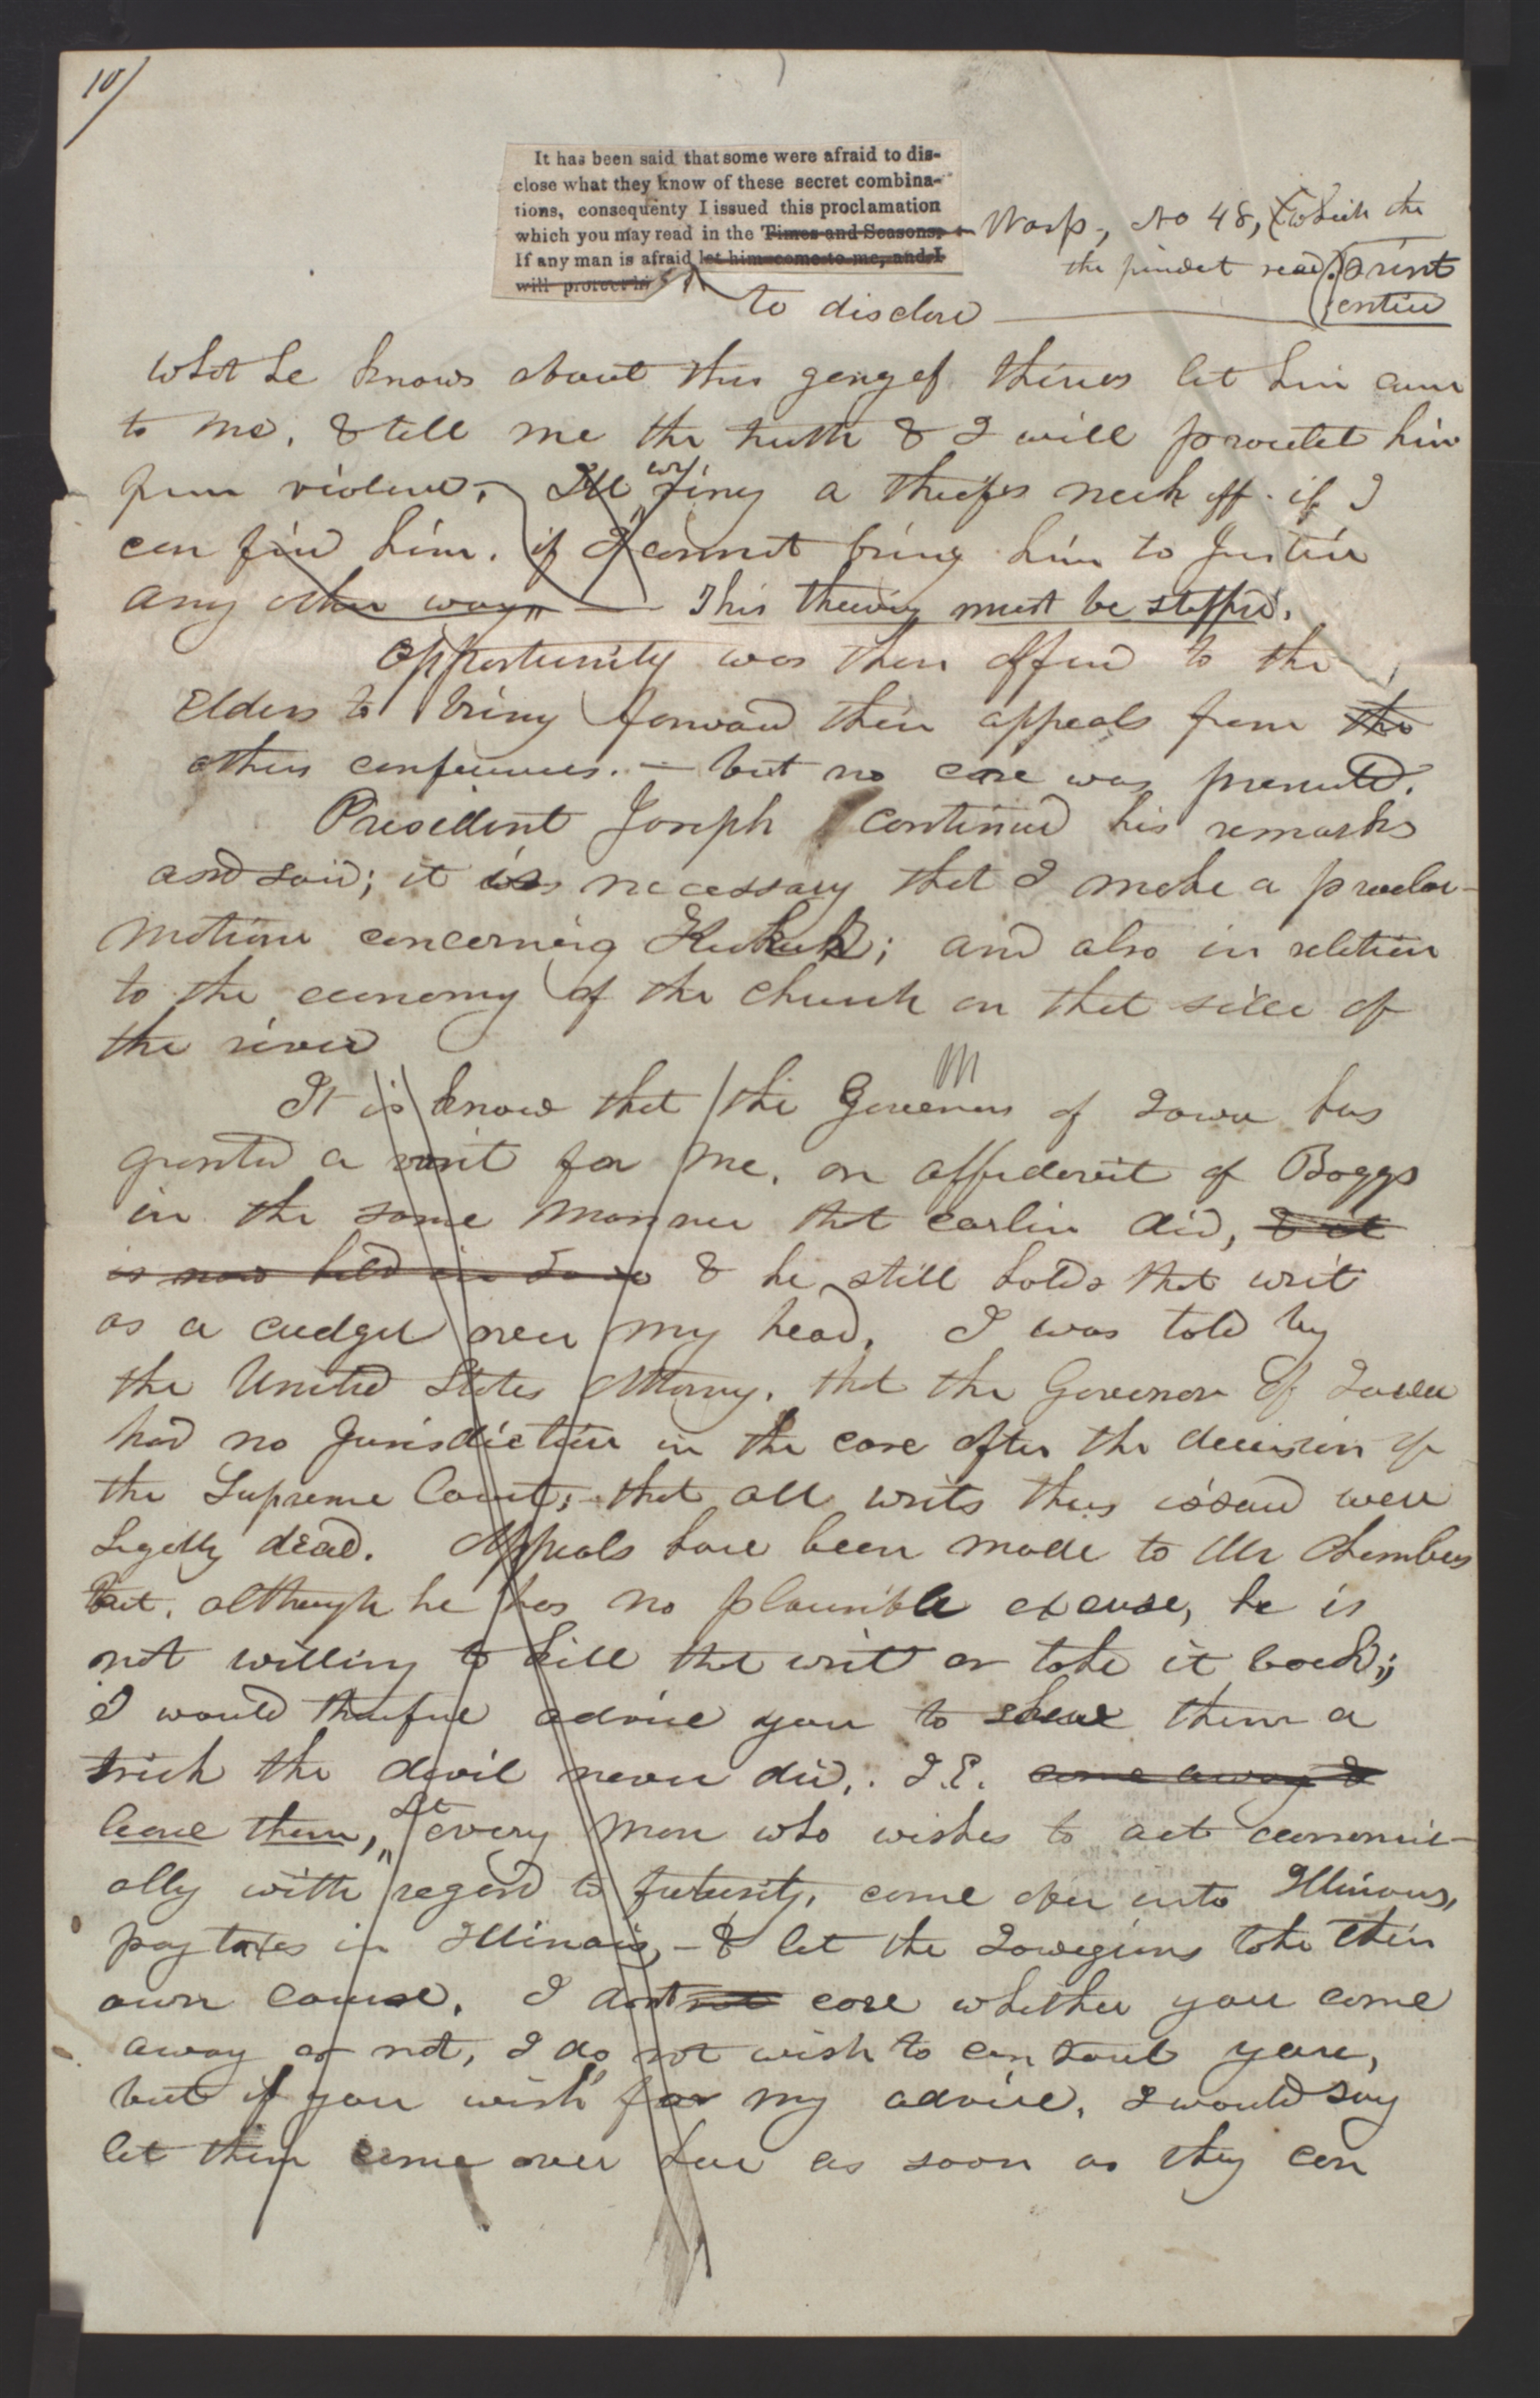 10/
It has been said that some were afraid to dis-
close what they know of these secret combina-
tions, consequenty I issued this proclamation
which you may read in the Times and Seasons. Wasp, No 48, (which the
If any man is afraid let him come to me, and I the president read.) (print
will protect hi to disclose entire
what he knows about this gang of thieves let him come
to me, & tell me the truth & I will protect him
from violence. I'll wring a thief's neck off. if I
can find him. if I cannot bring him to Justice
any other way" — This thieving must be stopped.
Opportunity was then offered to the
Elders to bring forward their appeals from the
other conferences. — but no case was presented.
President Joseph continued his remarks
and said; it is necessary that I make a procla-
mation concerning Keokuk; and also in relation
to the economy of the church on that side of
the river
It is know that the Governor of Iowa has
granted a writ for me, on affidavit of Boggs
in the same manner that Carlin did, & it
is now held in Iowa & he still holds that writ
as a cudgel over my head. I was told by
the United States Attorny, that the Governor of Iowa
had no Jurisdiction in the case after the decision of
the Supreme Court, that all writs thus issued were
legally dead. Appeals have been made to Mr Chambers
but, although he has no plausible excuse, he is
not willing to kill that writ or take it back;
I would therefore advise you to shew them a
trick the devil never did,. I.E. come away &
leave them, Let every man who wishes to act economic-
ally with regard to futurity, come over into Illinois,
pay taxes in Illinois, — & let the Iowegians take their
own course. I dont not care whether you come
away or not, I do not wish to controul you,
but if you wish for my advice, I would say
let them come over here as soon as they can